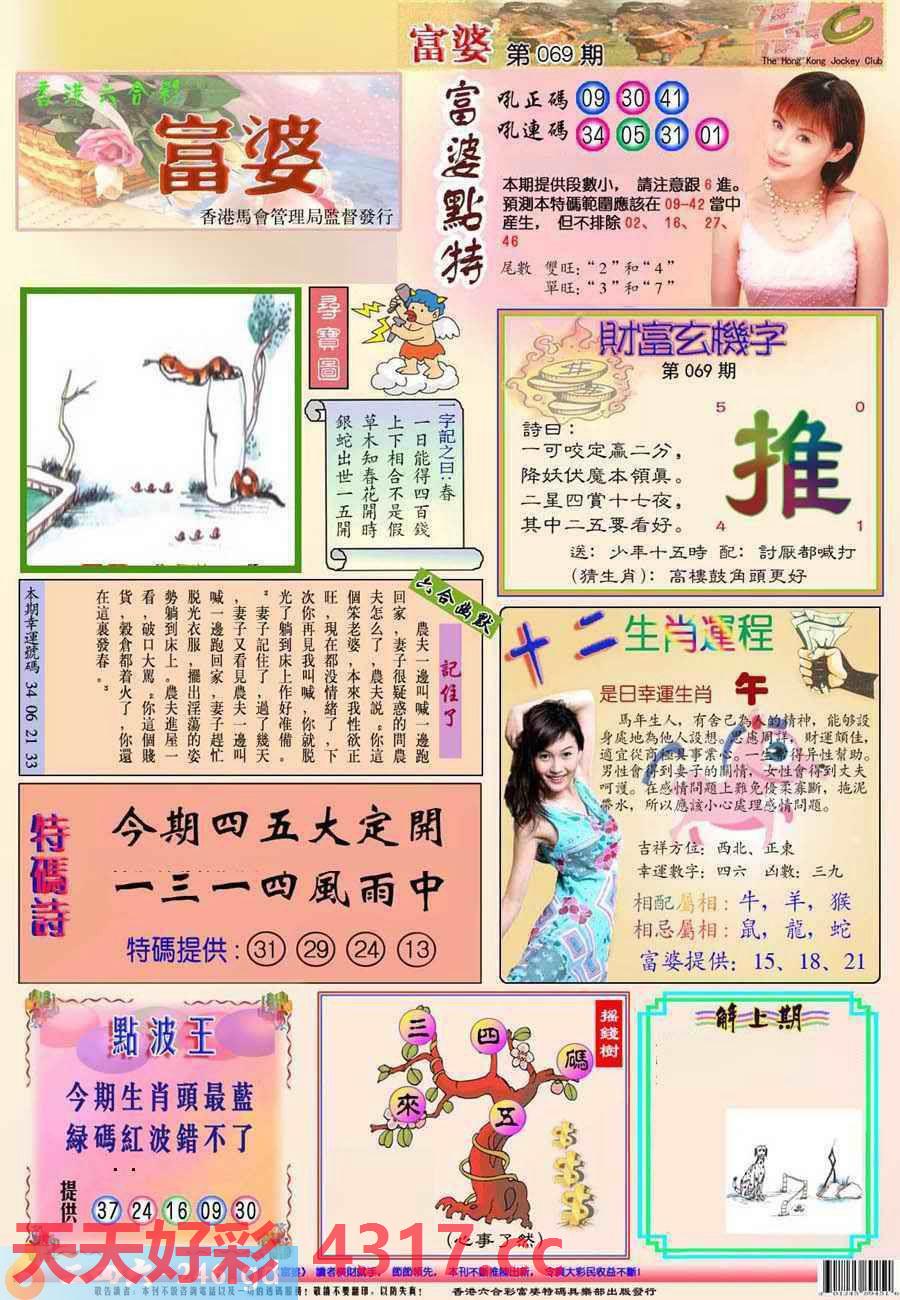 富婆 第 069 期
The Hong Kong Jockey Club
香港六合彩
富婆
香港馬會管理局監督發行
富婆點特
吼正碼 09 30 41
吼連碼 34 05 31 01
本期提供段數小， 請注意跟 6 進。
預測本特碼範圍應該在 09-42 當中
産生， 但不排除 02、 16、 27、
46
尾數 雙旺：“2”和“4”
單旺：“3”和“7”
尋寶圖
一字記之曰：春
一日能得四百錢
上下相合不是假
草木知春花開時
銀蛇出世一五開
財富玄機字
第 069 期
5 0
推
4 1
詩曰：
一可咬定贏二分，
降妖伏魔本領眞。
二星四賞十七夜，
其中二五要看好。
送： 少年十五時 配： 討厭都喊打
（猜生肖）：高樓鼓角頭更好
六合幽默
記住了
農夫一邊叫喊一邊跑
回家，妻子很疑惑的問農
夫怎么了，農夫説。你這
個笨老婆，本來我性欲正
旺，現在都没情緒了，下
次你再見我叫喊，你就脱
光了躺到床上作好准備。
”妻子記住了，過了幾天
，妻子又看見農夫一邊叫
喊一邊跑回家，妻子趕忙
脱光衣服，擺出淫蕩的姿
勢躺到床上。農夫進屋一
看，破口大罵。“你這個賤
貨，穀倉都着火了，你還
在這裏發春。”
本期幸運號碼 34 06 21 33
十二生肖運程
是日幸運生肖 午
馬年生人，有舍己為人的精神，能够設
身處地為他人設想。思慮周詳，財運頗佳，
適宜從商極具事業心。一生常得异性幫助。
男性會得到妻子的關情，女性會得到丈夫
呵護。在感情問題上難免優柔寡斷，拖泥
帶水，所以應該小心處理感情問題。
吉祥方位：西北、正東
幸運數字：四六 凶數：三九
相配屬相：牛，羊，猴
相忌屬相：鼠，龍，蛇
富婆提供：15、18、21
特碼詩
今期四五大定開
一三一四風雨中
特碼提供：31 29 24 13
點波王
今期生肖頭最藍
緑碼紅波錯不了
提供 37 24 16 09 30
搖錢樹
三 四 碼
來 五
（心事了然）
解上期
天天好彩 4317.cc
《富婆》 讀者橫財就手， 節節領先， 本刊不斷推陳出新， 令廣大彩民收益不斷！
香港六合彩富婆特碼俱樂部出版發行